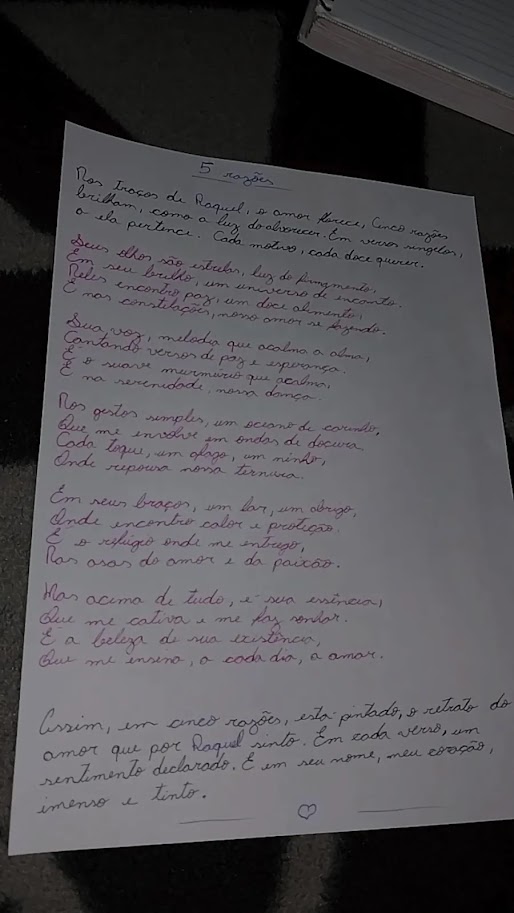 5 razões
Nos Traços de Raquel, o amor florece, Cinco razões
brilham, como a luz do alvorecer. Em versos singelos,
a ela pertence. Cada motivo, cada doce querer.
Seus olhos são estrelas, luz do firmamento,
Em seu brilho, um universo de encanto.
Neles encontro paz, um doce alimento,
E nas constelações, nosso amor se fazendo.
Sua voz, melodia que acalma a alma,
Cantando versos de paz e esperança.
É o suave murmúrio que acalma,
E na serenidade, nossa dança.
Nos gestos simples, um oceano de carinho,
Que me envolve em ondas de doçura
Cada toque, um afago, um ninho,
Onde repousa nossa ternura.
Em seus braços, um lar, um abrigo,
Onde encontro calor e proteção.
É o refúgio onde me entrego,
Nas asas do amor e da paixão.
Mas acima de tudo, é sua essência,
Que me cativa e me faz sonhar.
É a beleza de sua existência,
Que me ensina, a cada dia, a amar.
Assim, em cinco razões, está pintado, o retrato do
amor que por Raquel sinto. Em cada verso, um
sentimento declarado. E em seu nome, meu coração,
imenso e tinto.